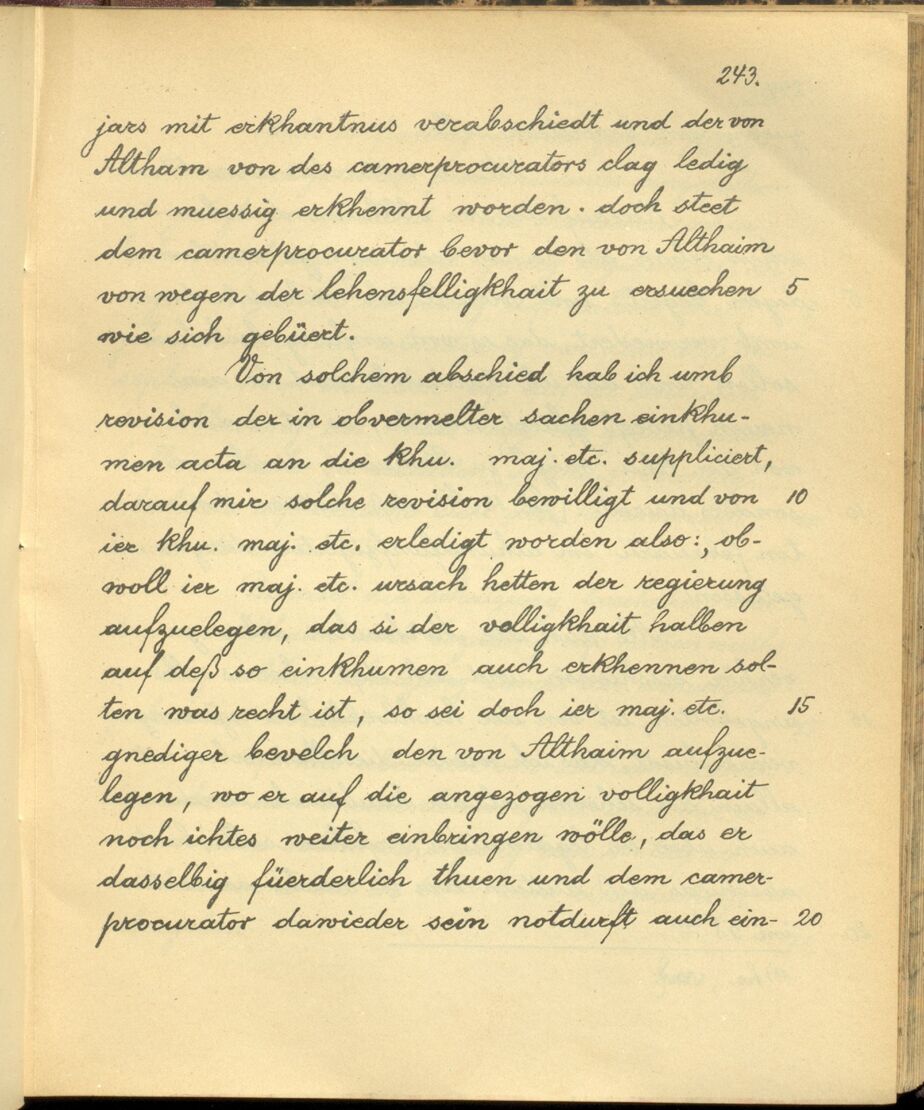 243.
jars mit erkhantnus verabschiedt und der von
Altham von des camerprocurators clag ledig
und muessig erkhennt worden. doch steet
dem camerprocurator bevor den von Althaim
von wegen der lehensfelligkhait zu ersuechen 5
wie sich gebüert.
Von solchem abschied hab ich umb
revision der in obvermelter sachen einkhu-
men acta an die khu. maj. etc. suppliciert,
darauf mir solche revision bewilligt und von 10
ier khu. maj. etc. erledigt worden also:, ob-
woll ier maj. etc. ursach hetten der regierung
aufzuelegen, das si der volligkhait halben
auf deß so einkhumen auch erkhennen sol-
ten was recht ist, so sei doch ier maj. etc. 15
gnediger bevelch den von Althaim aufzue-
legen, wo er auf die angezogen volligkhait
noch ichtes weiter einbringen wölle, das er
dasselbig füerderlich thuen und dem camer-
procurator dawieder sein notdurft auch ein- 20